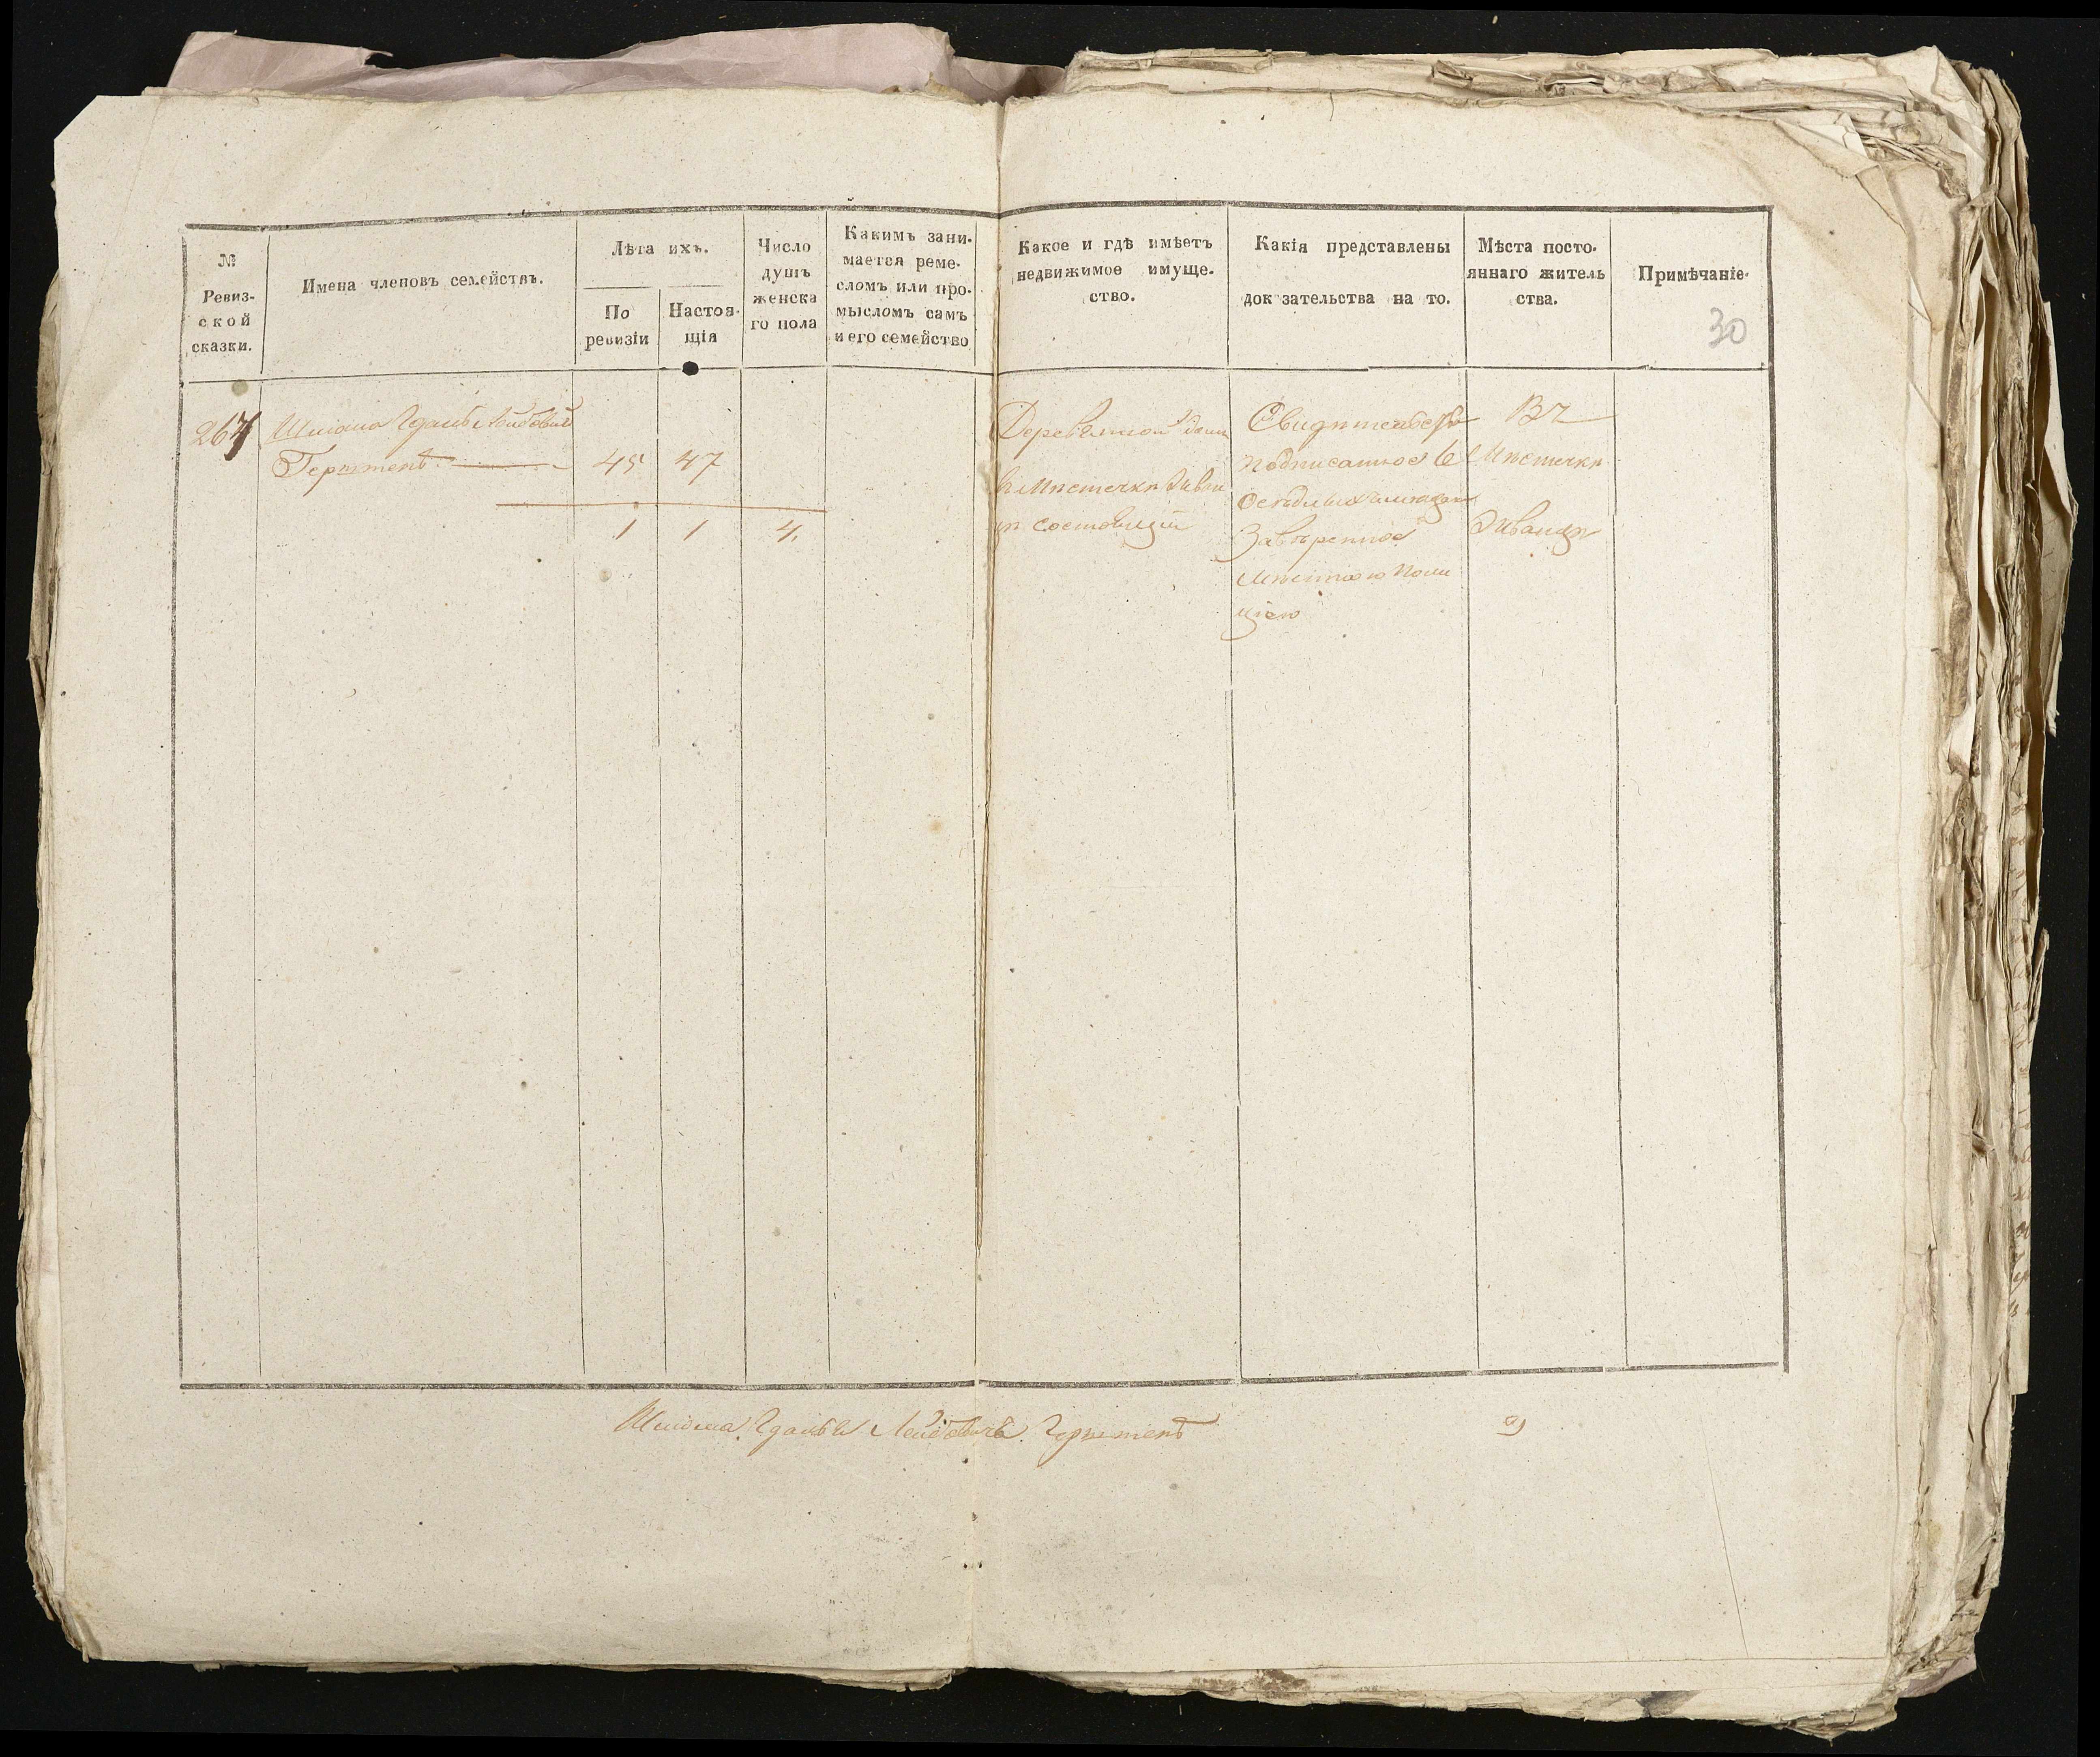 №
Ревиз-
ской
сказки.
Имена членовъ семействъ.
Лѣта ихъ.
По
ревизіи
Настоя-
щія
Число
душъ
женска
го пола
Какимъ зани-
мается реме-
сломъ или про-
мысломъ самъ
и его семейство
Какое и гдѣ имѣетъ
недвижимое имуще-
ство.
Какія представлены
док зательства на то.
Мѣста посто-
яннаго житель
ства.
Примѣчаніе-
30
267
Герштенъ 45 47
1 1 4.
Деревянной домъ
въ Мѣстечкѣ
состоящій
Свидѣтельство
подписанное 6
осѣдлыхъ
Завѣренное
Мѣстною Поли
ціею
Въ
Мѣстечкѣ
Герштенъ